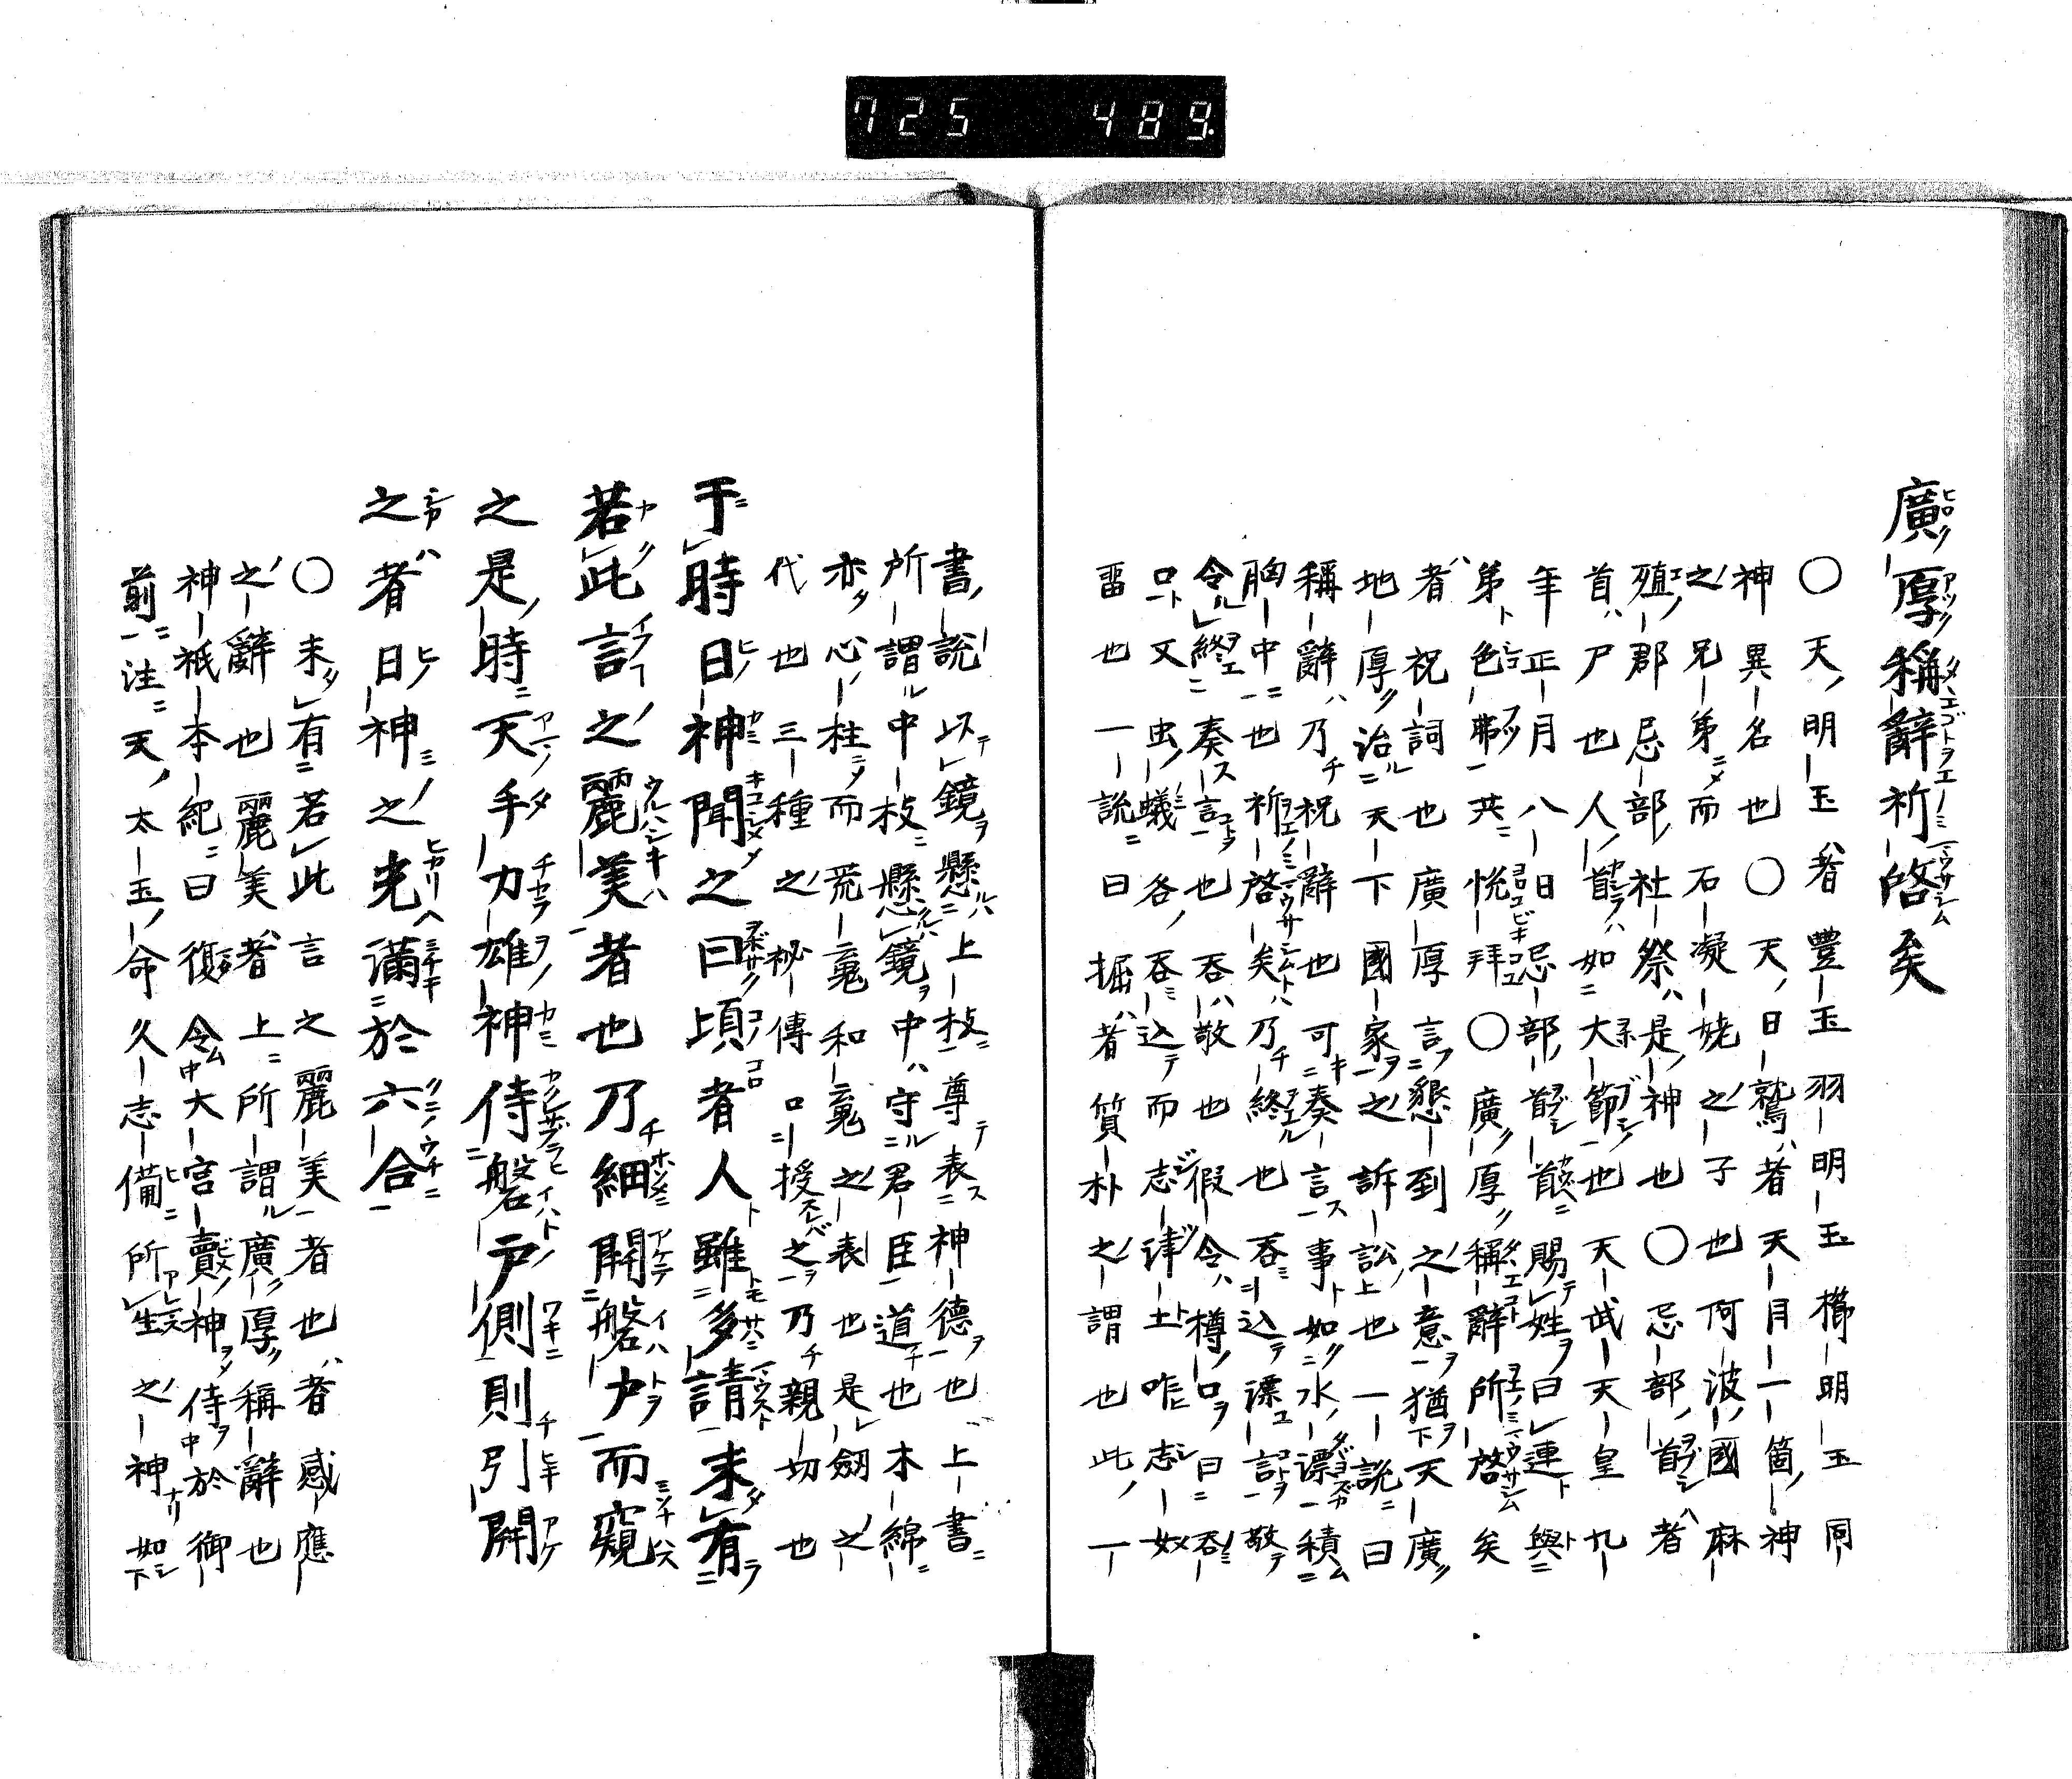 725 489
廣厚稱辭祈啓矣
〇天明玉者豊玉羽明玉櫛明玉同
神異名也〇天日鷲者天月一箇神
之兄弟而石凝姥之子也何波國麻
殖郡忌部社祭是神也〇忌部首者
首尸也人首如大節也天武天皇九
年正月八日忌部首首賜姓曰連與
弟色弗共悦拜〇廣厚稱辭所啓矣
者祝詞也廣厚言懇到之意猶天廣
地厚治天下國家之訴訟也一説曰
稱辭乃祝辭也可奏言事如水漂積
胸中也祈啓矣乃終也呑込漂言敬
令終奏言也呑敬也假令樽口曰呑
口又虫蟻各呑込而志津土咋志奴
畱也一説曰掘者質朴之謂也此一
書説以鏡懸上枝尊表神德也上書
所謂中枝懸鏡中守君臣道也木綿
亦心柱而荒䰟和䰟之表也是劔之
代也三種之祕傳口授之乃親切也
于時日神聞之曰頃者人雖多請未有
若此言之麗美者也乃細開磐戸而窺
之是時天手力雄神侍磐戸側則引開
之者日神之光滿於六合
〇未有若此言之麗美者也者感應
之辭也麗美者上所謂廣厚稱辭也
神祇本紀曰復令大宮賣神侍於御
前注天太玉命久志備所生之神如下